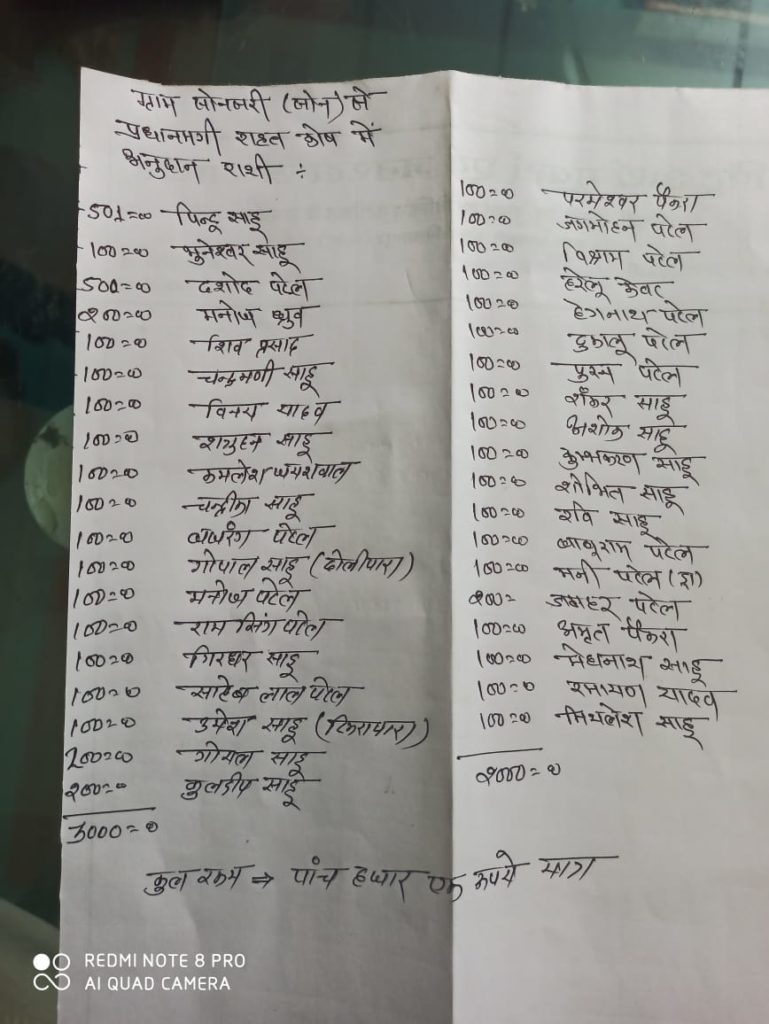 ग्राम सोनसरी (सोन) से
प्रधानमंत्री राहत कोष में
अनुदान राशी ÷
501=00 पिन्टू साहू
100=00 भुनेश्वर साहू
500=00 दशोद पटेल
200=00 मनोज ध्रुव
100=00 शिव प्रसाद
100=00 चन्द्रमणी साहू
100=00 विनय यादव
100=00 शत्रुहन साहू
100=00 कमलेश जयसवाल
100=00 चन्द्रीका साहू
100=00 बजरंग पटेल
100=00 गोपाल साहू (ढोलीपारा)
100=00 मनोज पटेल
100=00 राम सिंग पटेल
100=00 गिरधर साहू
100=00 साहेब लाल पटेल
100=00 उमेश साहू (टिकरापारा)
200=00 गोयल साहू
200=00 कुलदीप साहू
3000=00
100=00 परमेश्वर पैकरा
100=00 जगमोहन पटेल
100=00 विश्राम पटेल
100=00 हरेलू केवट
100=00 हेगनाथ पटेल
100=00 दुकालू पटेल
100=00 पुरुष पटेल
100=00 शंकर साहू
100=00 अशोक साहू
100=00 कुम्भकरण साहू
100=00 शोभित साहू
100=00 रवि साहू
100=00 बाबूराम पटेल
100=00 मनी पटेल
200= जवाहर पटेल
100=00 अमृत पैकरा
100=00 मेघनाथ साहू
100=00 रामायण यादव
100=00 मिथलेश साहू
2000=00
कुल रकम ⇒ पांच हजार एक रूपये मात्र
REDMI NOTE 8 PRO
AI QUAD CAMERA